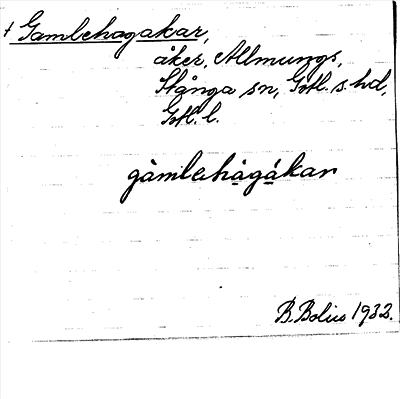 † Gamlehagakar,
åker, Allmungs,
Stånga sn, Gotl. s. hd,
Gotl. l.
gàmlehàgákar
B. Bolin 1932.